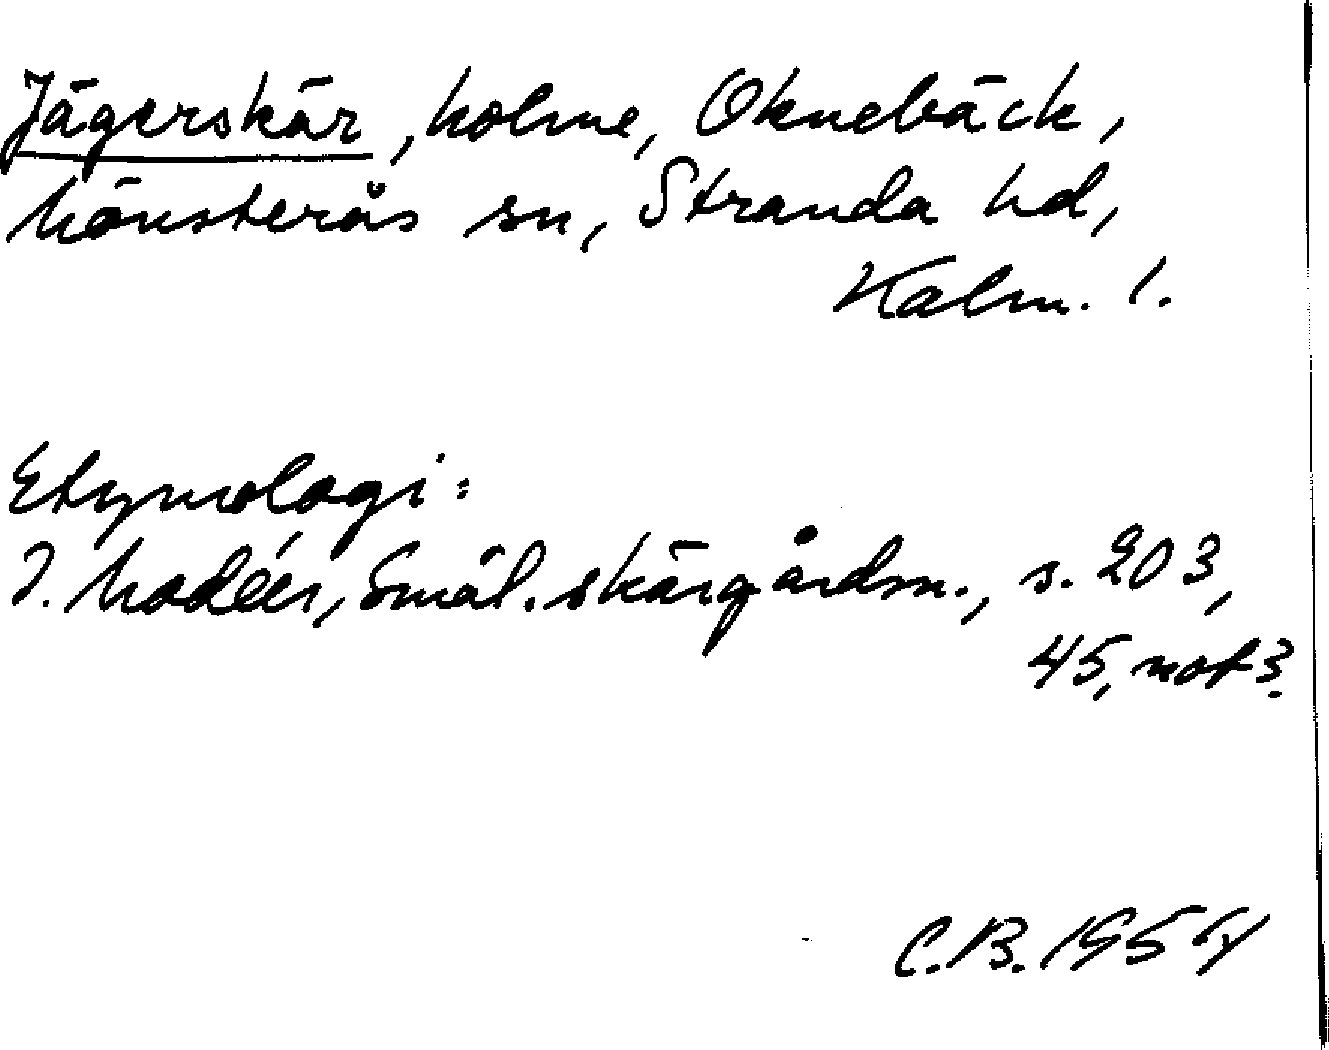 Jägerskär, holme, Oknebäck,
Mönsterås sn, Stranda hd,
Kalm. l.
Etymologi:
I. Modéer, Smål. skärgårdsn., s. 203,
45, not 3.
C.B. 1954